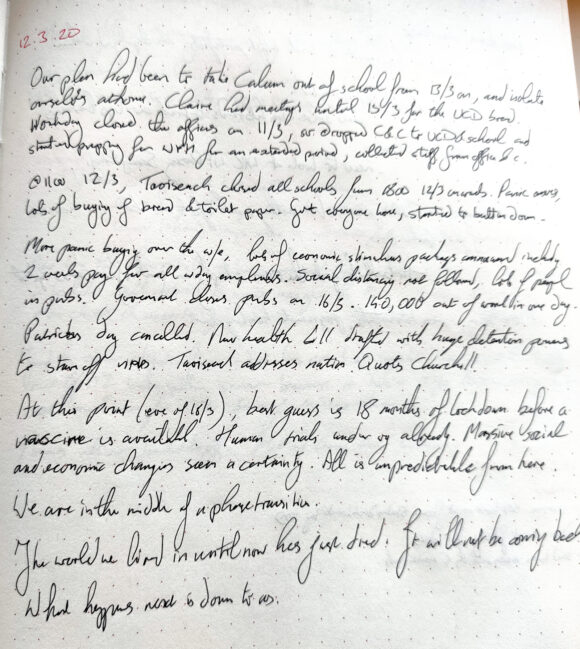 12.3.20
Our plan had been to take Calum out of school from 13/3 on, and isolate
ourselves at home. Claire had meetings until 13/3 for the UCD
Workday closed the offices on 11/3, so dropped C&C to UCD & school and
started prepping for WFH for an extended period, collected stuff from office &c.
@1100 12/3, Taoiseach closed all schools from 1800 12/3 onwards. Panic
lots of buying of bread & toilet paper. Got everyone home, started to button down.
More panic buying over the w/e, lots of economic stimulus packages announced including
2 weeks pay for all wday employees. Social distancing not followed, lots of people
in pubs. Government closes pubs on 16/3. 140,000 out of work in one day.
Patricks day cancelled. New health bill drafted with huge detention powers
to stave off Taoiseach addresses nation. Quotes Churchill.
At this point (eve of 18/3), best guess is 18 months of lockdown before a
vaccine is available. Human trials under way already. Massive social
and economic changes seem a certainty. All is unpredictable from here.
We are in the middle of a phase transition.
The world we lived in until now has just died. It will not be coming back
What happens next is down to us.